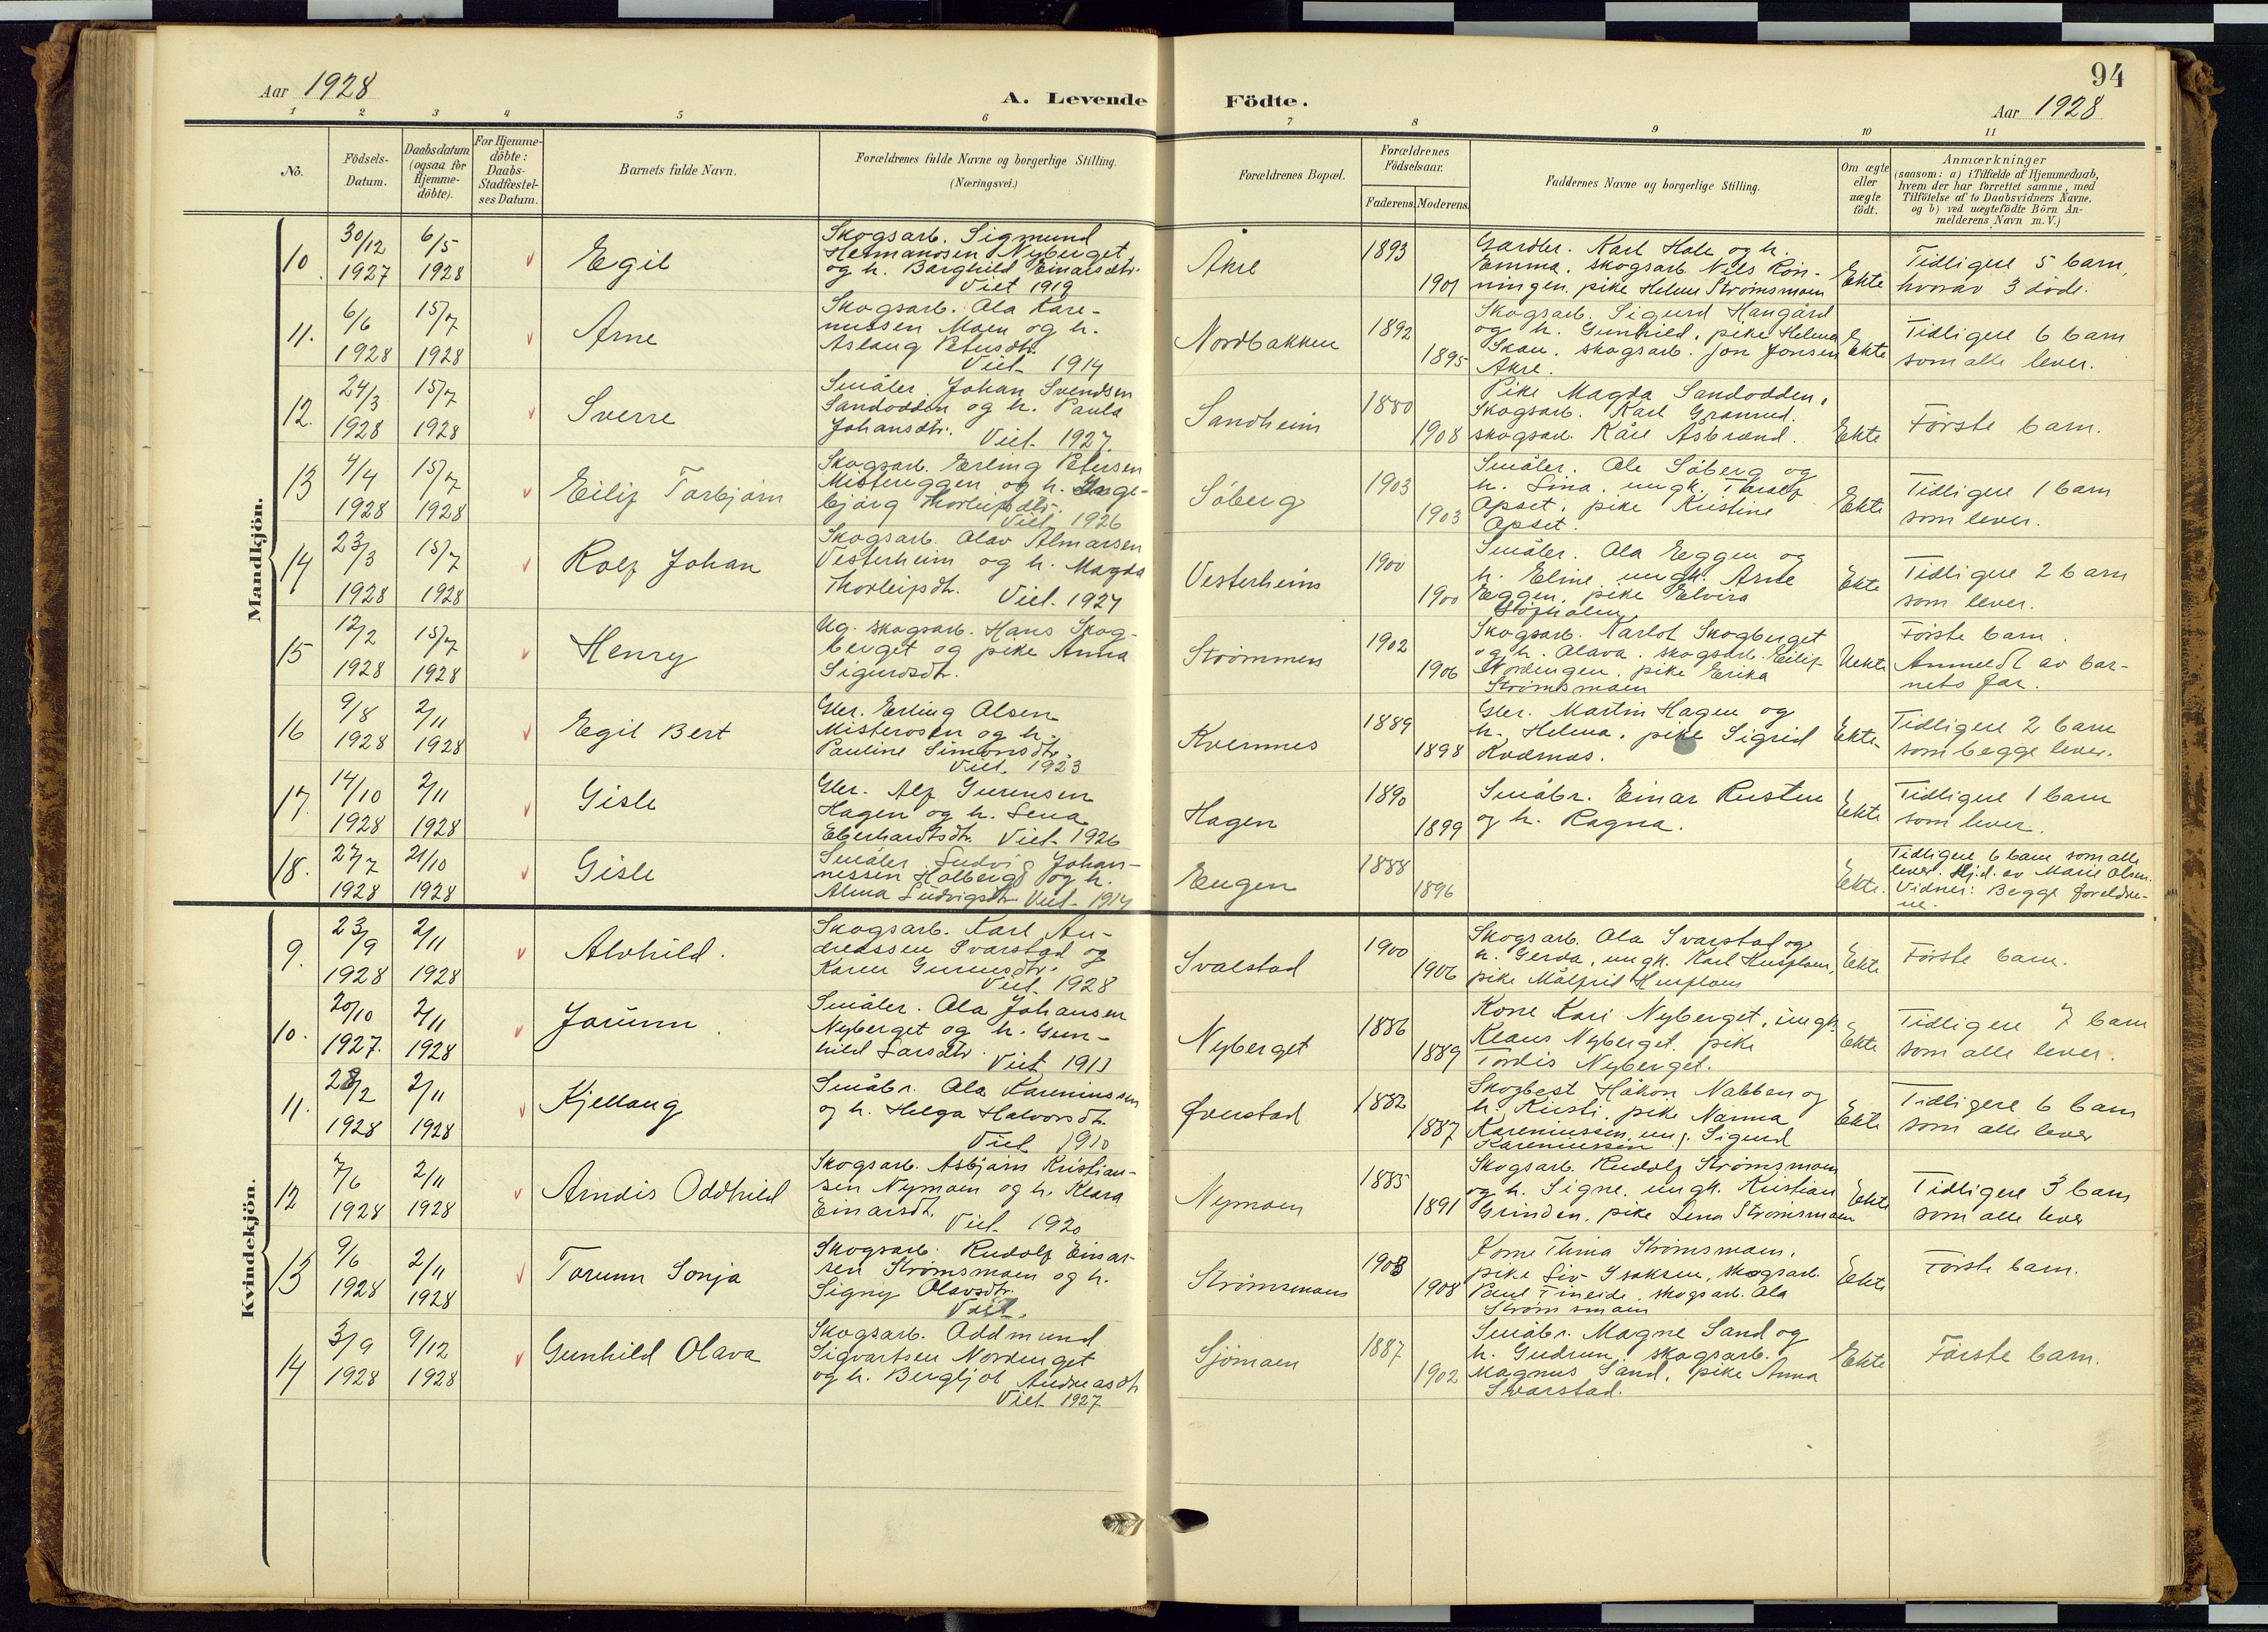 94
Aar 1928
A. Levende Födte.
Aar 1928
1 2 3 4 5 6 7 8 9 10 11
No.
Födsels-Datum.
Daabsdatum (ogsaa for Hjemme-döbte).
For Hjemme-döbte: Daabs-Stadfæstel-ses Datum.
Barnets fulde Navn.
Forældrenes fulde Navne og borgerlige Stilling.
(Næringsvei.)
Forældrenes Bopæl.
Forældrenes Födselsaar.
Faderens. Moderens.
Faddernes Navne og borgerlige Stilling.
Om ægte eller uægte født.
Anmærkninger
(saasom: a) i Tilfælde af Hjemmedaab,
hvem der har forrettet samme, med
Tilföielse af to Daabsvidners Navne,
og b) ved uægtefödte Börn An-
melderens Navn m. V.)
Mandkjön.
10. 30/12 1927 6/5 1928 Egil
Skogsarb. Sigmund
Hermansen Nyberget
og h. Borghild Einarsdtr.
Viet 1919
Åkre 1893 1901
Gardbr. Karl Hole og h.
Emma, skogsarb Nils Rön-
ningen, pike Helene Strømsmoen
Ekte
Tidligere 5 barn,
hvorav 3 døde.
11. 6/6 1928 15/7 1928 Arne
Skogsarb. Ola Kare-
niussen Moen og h.
Aslaug Petersdtr.
Viet 1914
Nordbakken 1892 1895
Skogsarb. Sigurd Haugård
og h. Gunhild, pike Helena
Skau, skogsarb. Jon Jonsen
Åkre.
Ekte
Tidligere 6 barn
som alle lever.
12. 24/3 1928 15/7 1928 Sverre
Småbr. Johan Svendsen
Sandodden og h. Paula
Johansdtr. Viet 1927
Sandheim 1880 1908
Pike Magda Sandodden,
Skogsarb. Karl Granrud,
skogsarb. Kåre Åsbrænd.
Ekte
Første barn.
13 4/4 1928 15/7 1928 Eilif Torbjørn
Skogsarb. Erling Petersen
Mistereggen og h. Inge-
bjørg Thorleifsdtr.
Viet 1926
Söberg 1903 1903
Småbr. Ole Söberg og
h. Lina, ungk. Toralf
Opset, pike Kristine
Opset.
Ekte
Tidligere 1 barn
som lever.
14 23/3 1928 15/7 1928 Rolf Johan
Skogsarb. Olav Almarsen
Vesterheim og h. Magda
Thorleifsdtr. Viet 1924
Vesterheim 1900 1900
Småbr. Ola Eggen og
h. Eline, ungk. Arne
Eggen, pike Elvira
Ekte
Tidligere 2 barn
som lever.
15 12/2 1928 15/7 1928 Henry
Ug. skogsarb. Hans Skog-
berget og pike Anna
Sigurdsdtr.
Strömmen 1902 1906
Skogsarb. Karlot Skogberget
og h. Olava, skogsarb. Eilif
Nordengen, pike Erika
Strømsmoen
Uekte
Første barn.
Anmeldt av bar-
nets far.
16 9/8 1928 2/11 1928 Egil Bert
Gbr. Erling Olsen
Misterosen og h.
Pauline Simonsdtr.
Viet 1923
Kvernnes 1889 1898
Gbr. Martin Hagen og
h. Helena, pike Sigrid
Kvernnes.
Ekte
Tidligere 2 barn
som begge lever.
17. 14/10 1928 2/11 1928 Gisle
Gbr. Alf Gurensen
Hagen og h. Lena
Eberhardtsdtr. Viet 1926
Hagen 1890 1899
Småbr. Einar Rusten
og h. Ragna.
Ekte
Tidligere 1 barn
som lever.
18. 27/7 1928 21/10 1928 Gisle
Småbr. Ludvig Johan-
nessen Holberg og h.
Alma Ludvigsdtr. Viet 1914
Engen 1888 1896
Ekte.
Tidligere 6 barn som alle
lever. Hj.d. av Marie Olsen.
Vidner: Begge foreldre-
ne.
Kvindekjön.
9. 23/9 1928 2/11 1928 Alvhild.
Skogsarb. Karl An-
dreassen Svarstad og
Karen Gurensdtr.
Viet 1928
Svalstad 1900 1906
Skogsarb. Ola Svarstad og
h. Gerda, ungk. Karl Husplass,
pike Målfrid Husplass
Ekte
Første barn.
10. 20/10 1927. 2/11 1928 Jorunn.
Småbr. Ola Johansen
Nyberget og h. Gun-
hild Larsdtr. Viet 1913
Nyberget 1886 1889
Kone Kari Nyberget, ungk.
Klaus Nyberget, pike
Tordis Nyberget.
Ekte
Tidligere 7 barn
som alle lever.
11. 28/2 1928 2/11 1928 Kjellaug
Småbr. Ola Kareniussen
og h. Helga Halvorsdtr.
Viet 1910
Øverstad 1882 1887
Skogbest Håkon Nabben og
h. Kirsti, pike Nanna
Kareniussen, ung. Sigurd
Kareniussen
Ekte
Tidligere 6 barn
som alle lever
12 7/6 1928 2/11 1928 Arndis Oddhild
Skogsarb. Asbjørn Kristian-
sen Nymoen og h. Klara
Einarsdtr. Viet 1920
Nymoen 1885 1891
Skogsarb. Rudolf Strømsmoen
og h. Signe, ungk. Kristian
Grinden, pike Lena Strømsmoen
Ekte
Tidligere 3 barn
som alle lever
13 9/6 1928 2/11 1928 Torunn Sonja
Skogsarb. Rudolf Einar-
sen Strömsmoen og h.
Signy Olavsdtr.
Viet.
Strömsmoen 1903 1908
Kone Thina Strömsmoen,
pike Liv Isaksen, skogsarb.
Paul Fineide, skogsarb. Ola
Strømsmoen
Ekte
Første barn.
14 3/9 1928 9/12 1928 Gunhild Olava
Skogsarb. Oddmund
Sigvartsen Nordenget
og h. Bergljot Andreasdtr
Viet 1927
Sjömoen 1887 1902
Småbr. Magne Sand og
h. Gudrun, skogsarb.
Magnus Sand, pike Anna
Svarstad.
Ekte
Første barn.